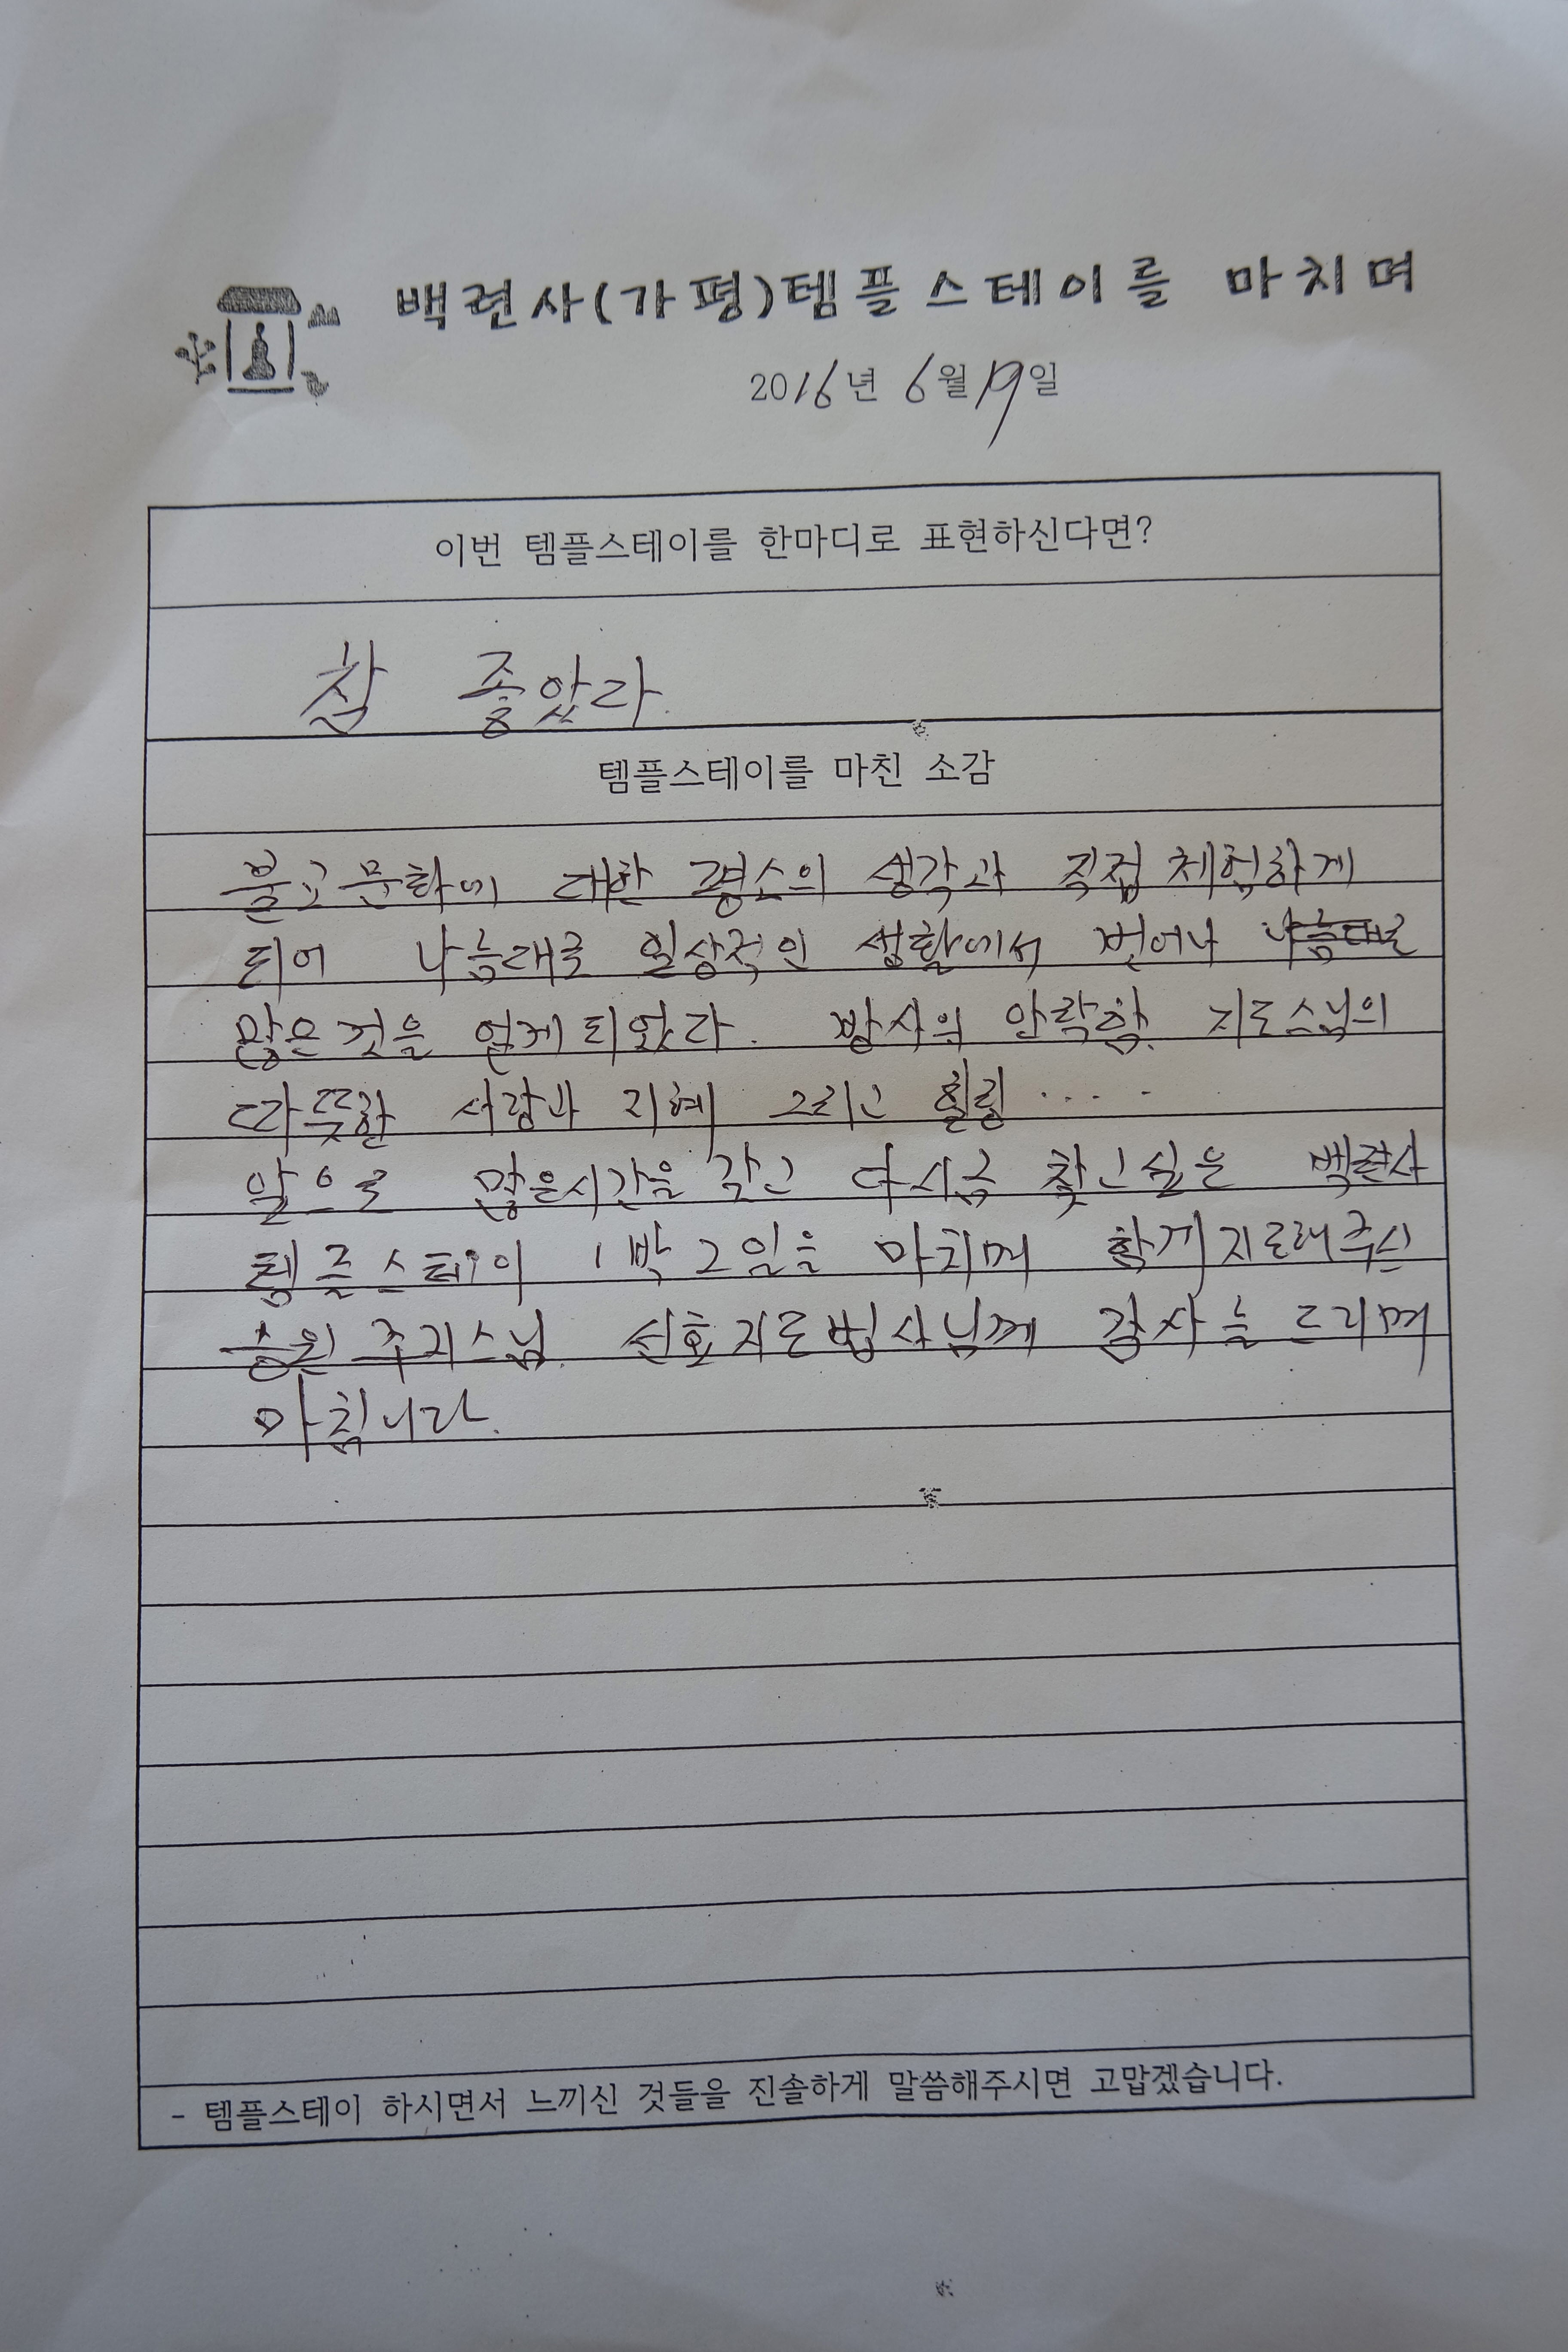 백련사(가평)템플스테이를 마치며
2016년 6월 19일
이번 템플스테이를 한마디로 표현하신다면?
참 좋았다.
템플스테이를 마친 소감
불교문화에 대한 평소의 생각과 직접 체험하게
되어 나름대로 일상적인 생활에서 벗어나 나름대로
많은 것을 얻게 되었다. 방사의 안락함. 지도스님의
따뜻한 사랑과 지혜 그리고 힐링 .....
앞으로 많은시간을 갖고 다시금 찾고 싶은 백련사
템플스테이 1박 2일을 마치며 함께 지도해 주신
승원 주지스님. 선호 지도법사님께 감사를 드리며
마칩니다.
- 템플스테이 하시면서 느끼신 것들을 진솔하게 말씀해주시면 고맙겠습니다.